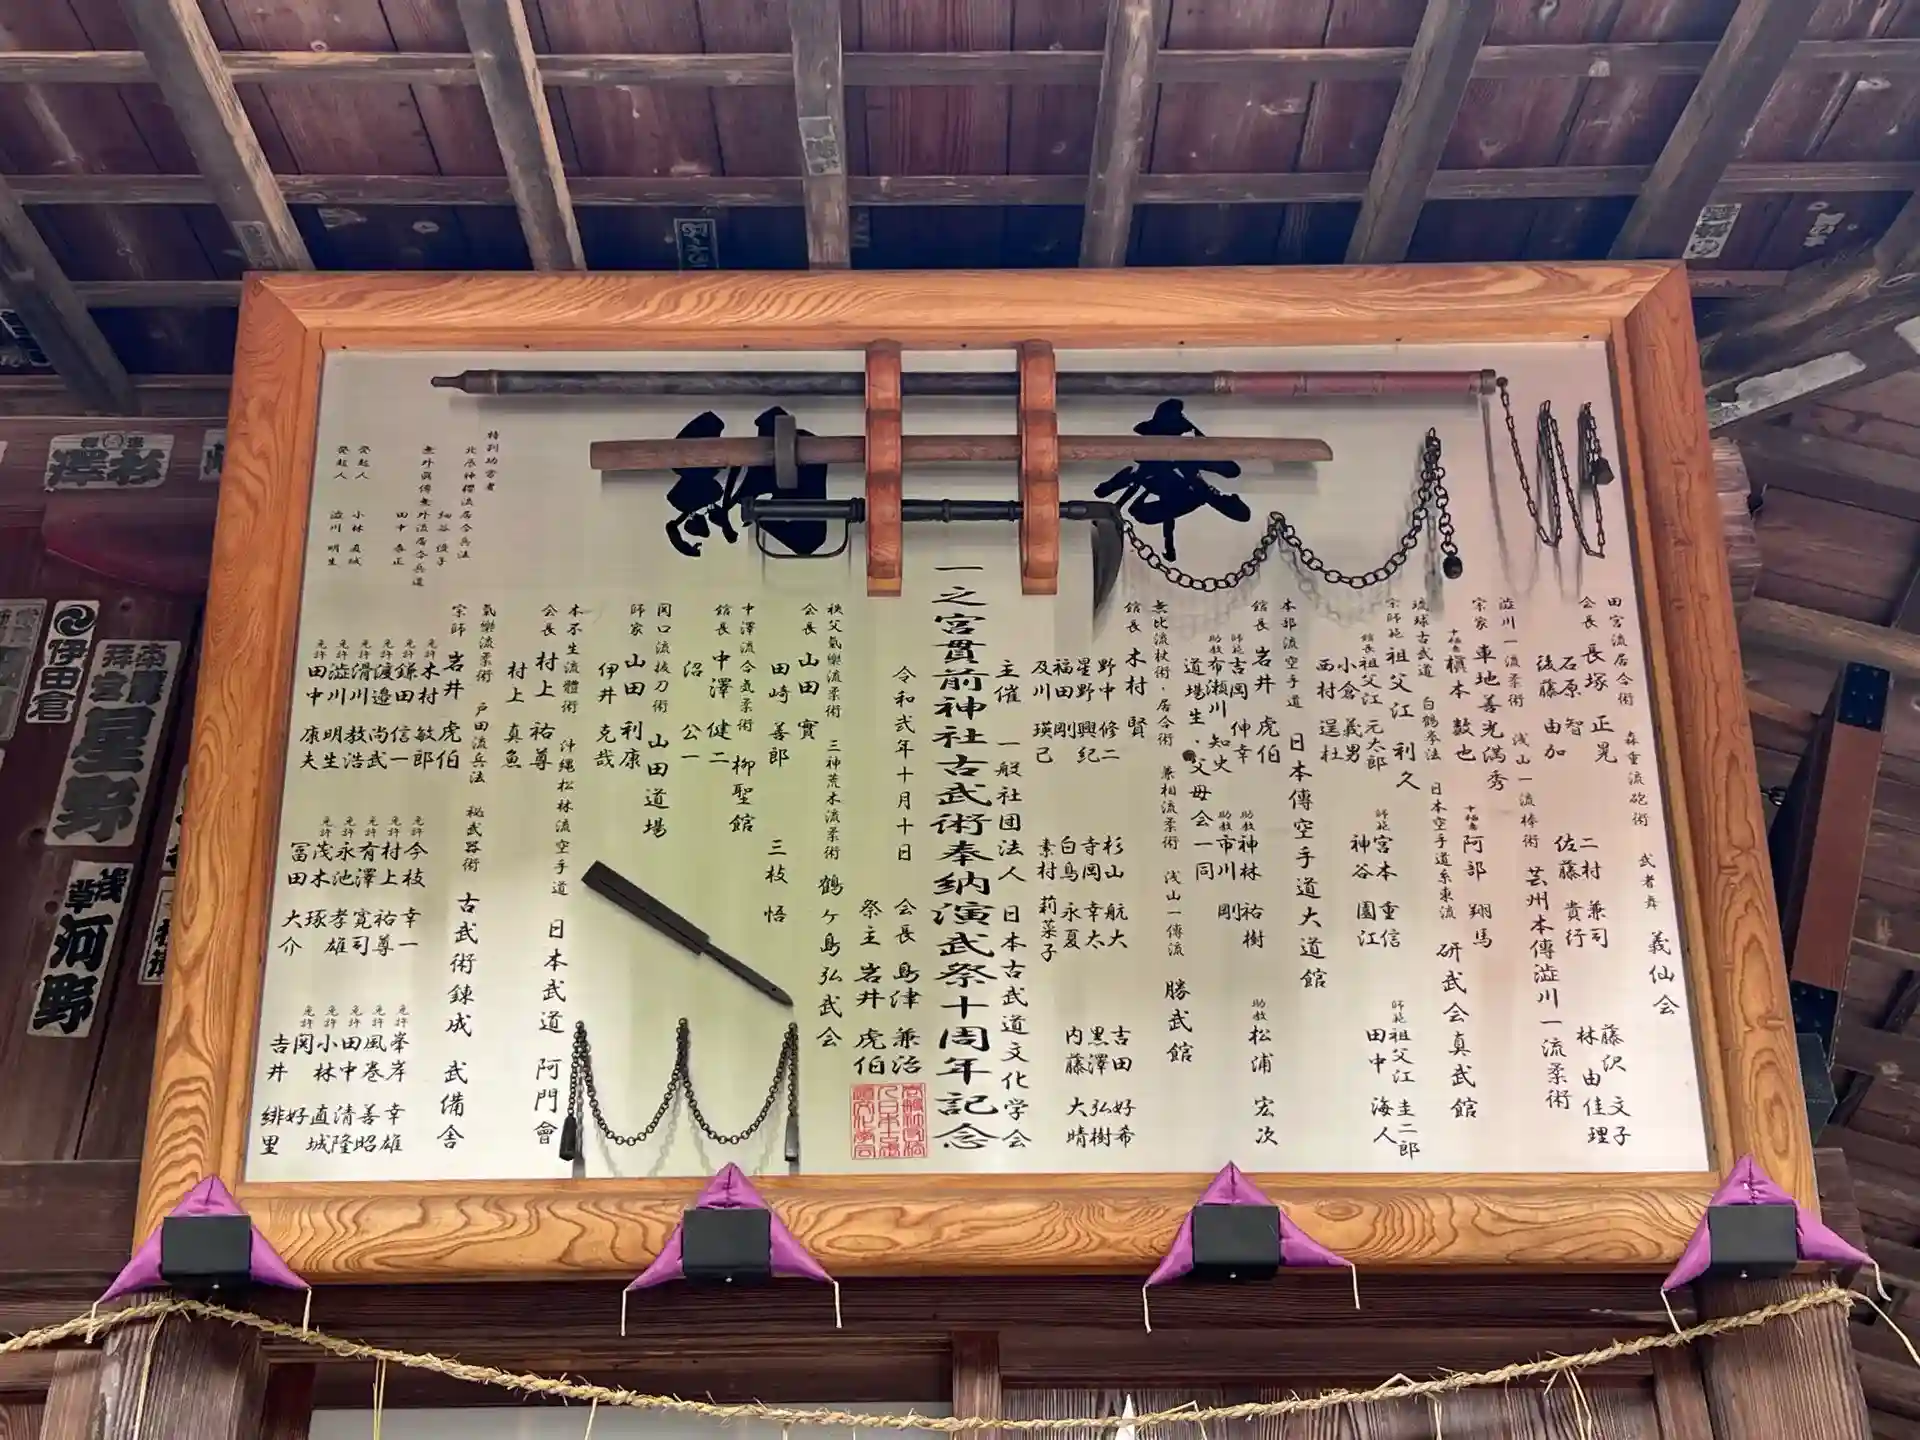 奉納
田宮流居合術 森重流砲術 武者舞 義仙会
会長 長塚 正晃
石原 智
後藤 由加
二村 兼司
佐藤 貴行
藤沢 文子
林 由佳理
澁川一流柔術 浅山一流棒術 芸州本傳澁川一流柔術
宗家 車地 善光満秀
槇本 数也
阿部 翔馬
琉球古武道 白鶴拳法 日本空手道糸東流 研武会真武館
宗師範 祖父江 利久
館長 祖父江 元太郎
小倉 義男
西村 逞杜
師範 宮本 重信
神谷 園江
師範 祖父江 圭二郎
田中 海人
本部流空手道 日本傳空手道大道館
館長 岩井 虎伯
師範 吉岡 伸幸
助教 布瀬川 知史
道場生・父母会一同
助教 神林 祐樹
助教 市川 剛
助教 松浦 宏次
無比流杖術・居合術 兼相流柔術 浅山一傳流 勝武館
館長 木村 賢
野中 修二
星野 興紀
福田 剛
及川 瑛己
杉山 航大
寺岡 幸太
白鳥 永夏
素村 莉菜子
吉田 好希
黒澤 弘樹
内藤 大晴
主催 一般社団法人 日本古武道文化学会
一之宮貫前神社古武術奉納演武祭十周年記念
令和弐年十月十日
会長 島津 兼治
祭主 岩井 虎伯
秩父氣樂流柔術 三神荒木流柔術 鶴ヶ島弘武会
会長 山田 實
田崎 善郎
三枝 悟
中澤流合氣柔術 柳聖館
館長 中澤 健二
沼 公一
関口流抜刀術 山田道場
師家 山田 利康
伊井 克哉
本不生流體術 沖縄松林流空手道 日本武道 阿門會
会長 村上 祐尊
村上 真魚
氣樂流柔術 戸田流兵法 秘武器術 古武術錬成 武備舎
宗師 岩井 虎伯
免許 木村 敏郎
免許 鎌田 信一
免許 渡邉 尚武
免許 滑川 教浩
免許 澁川 明生
免許 田中 康夫
免許 今枝 幸一
免許 村上 祐尊
免許 有澤 寛司
免許 永池 孝雄
免許 茂木 琢
冨田 大介
免許 峯岸 幸雄
免許 風巻 善昭
免許 田中 清隆
免許 小林 直城
免許 関 好
吉井 緋里
特別功労者
北辰神櫻流居合兵法
細谷 優子
無外眞傳無外流居合兵道
田中 泰正
発起人 小林 直城
発起人 澁川 明生
伊田倉
星野
浅草
河野
杉澤